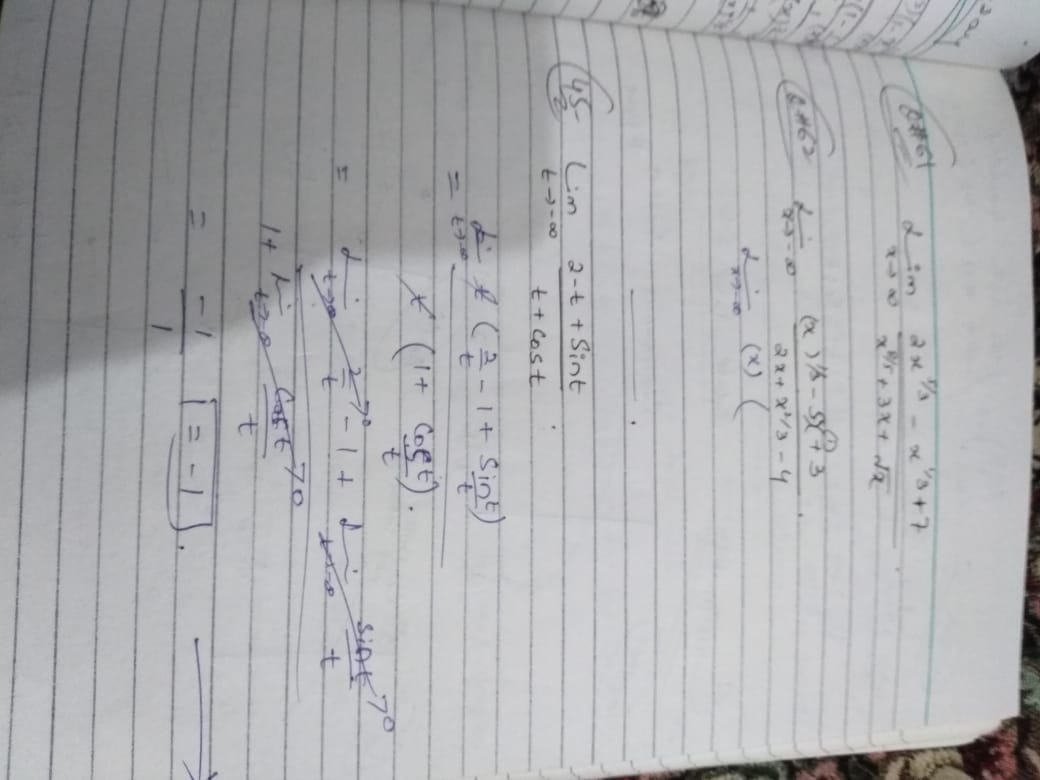 Q#61 Lim x→∞ (2x^5/3 - x^1/3 + 7) / (x^8/5 + 3x + √x)
Q#62 Lim x→-∞ ((x)^1/3 - 5x + 3) / (2x + x^2/3 - 4)
Lim x→-∞ (x) (
45 Lim t→-∞ (2-t + sint) / (t + cost)
= Lim t→-∞ t (2/t - 1 + sint/t) / t (1 + cost/t).
= Lim t→-∞ 2/t →0 - 1 + Lim t→-∞ sint/t →0
1 + Lim t→-∞ cost/t →0
= -1/1 = -1.